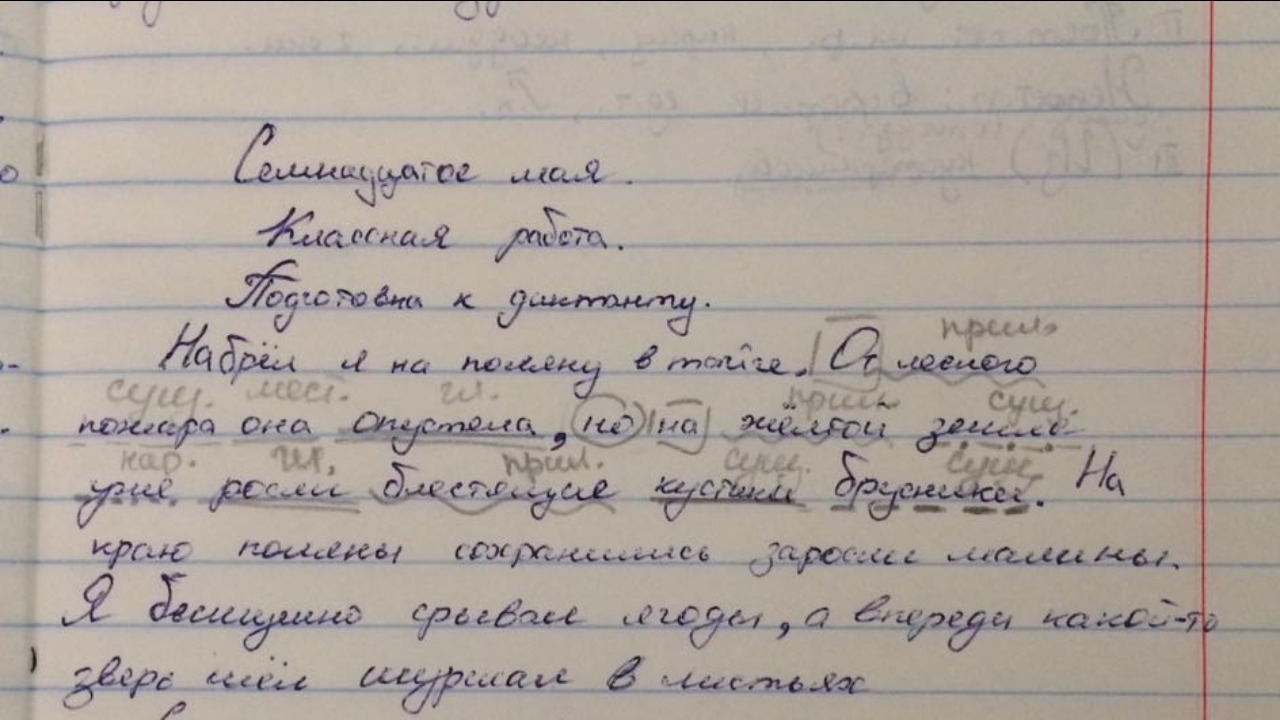 Семнадцатое мая.
Классная работа.
Подготовка к диктанту.
прил.
Набрёл я на поляну в тайге. От лесного
сущ. мест. гл. прил. сущ.
пожара она опустела, но на жёлтой земле
нар. гл. прил. сущ. сущ.
уже росли блестящие кустики брусники. На
краю поляны сохранились заросли малины.
Я бесшумно срывал ягоды, а впереди какой-то
зверь шёл шуршал в листьях